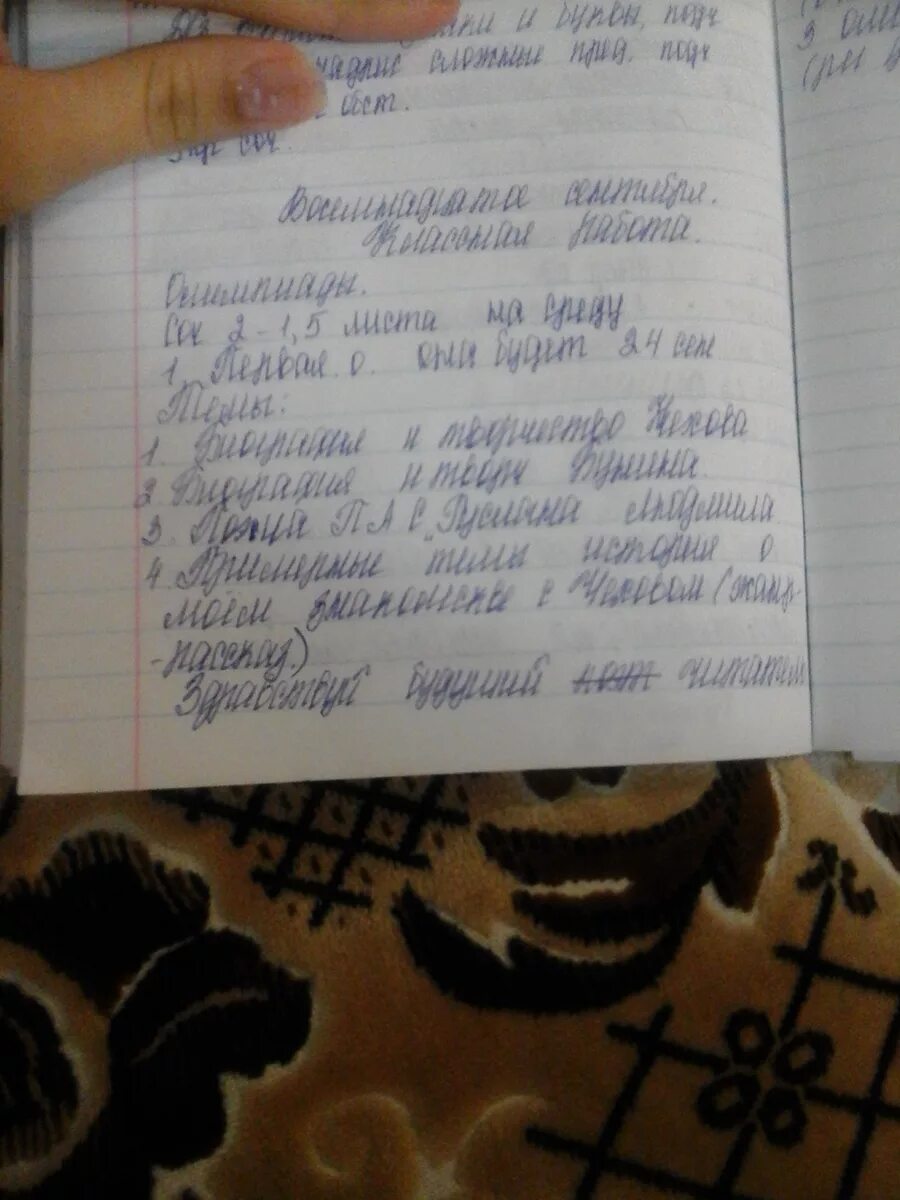 и буквы, подч
сложные пред. подч
обст.
соч.
Восемнадцатое сентября.
Классная работа.
Олимпиады.
Соч 2-1,5 листа на среду
1. Первая о. она будет 24 сен
Темы:
1. Биография и творчество Чехова
2. Биография и творч Бунина.
3. П А С „Руслан и Людмила
4. Примерные темы история о
моём знакомстве с Чеховом (жанр-
-рассказ.)
Здравствуй будущий поэт читатель